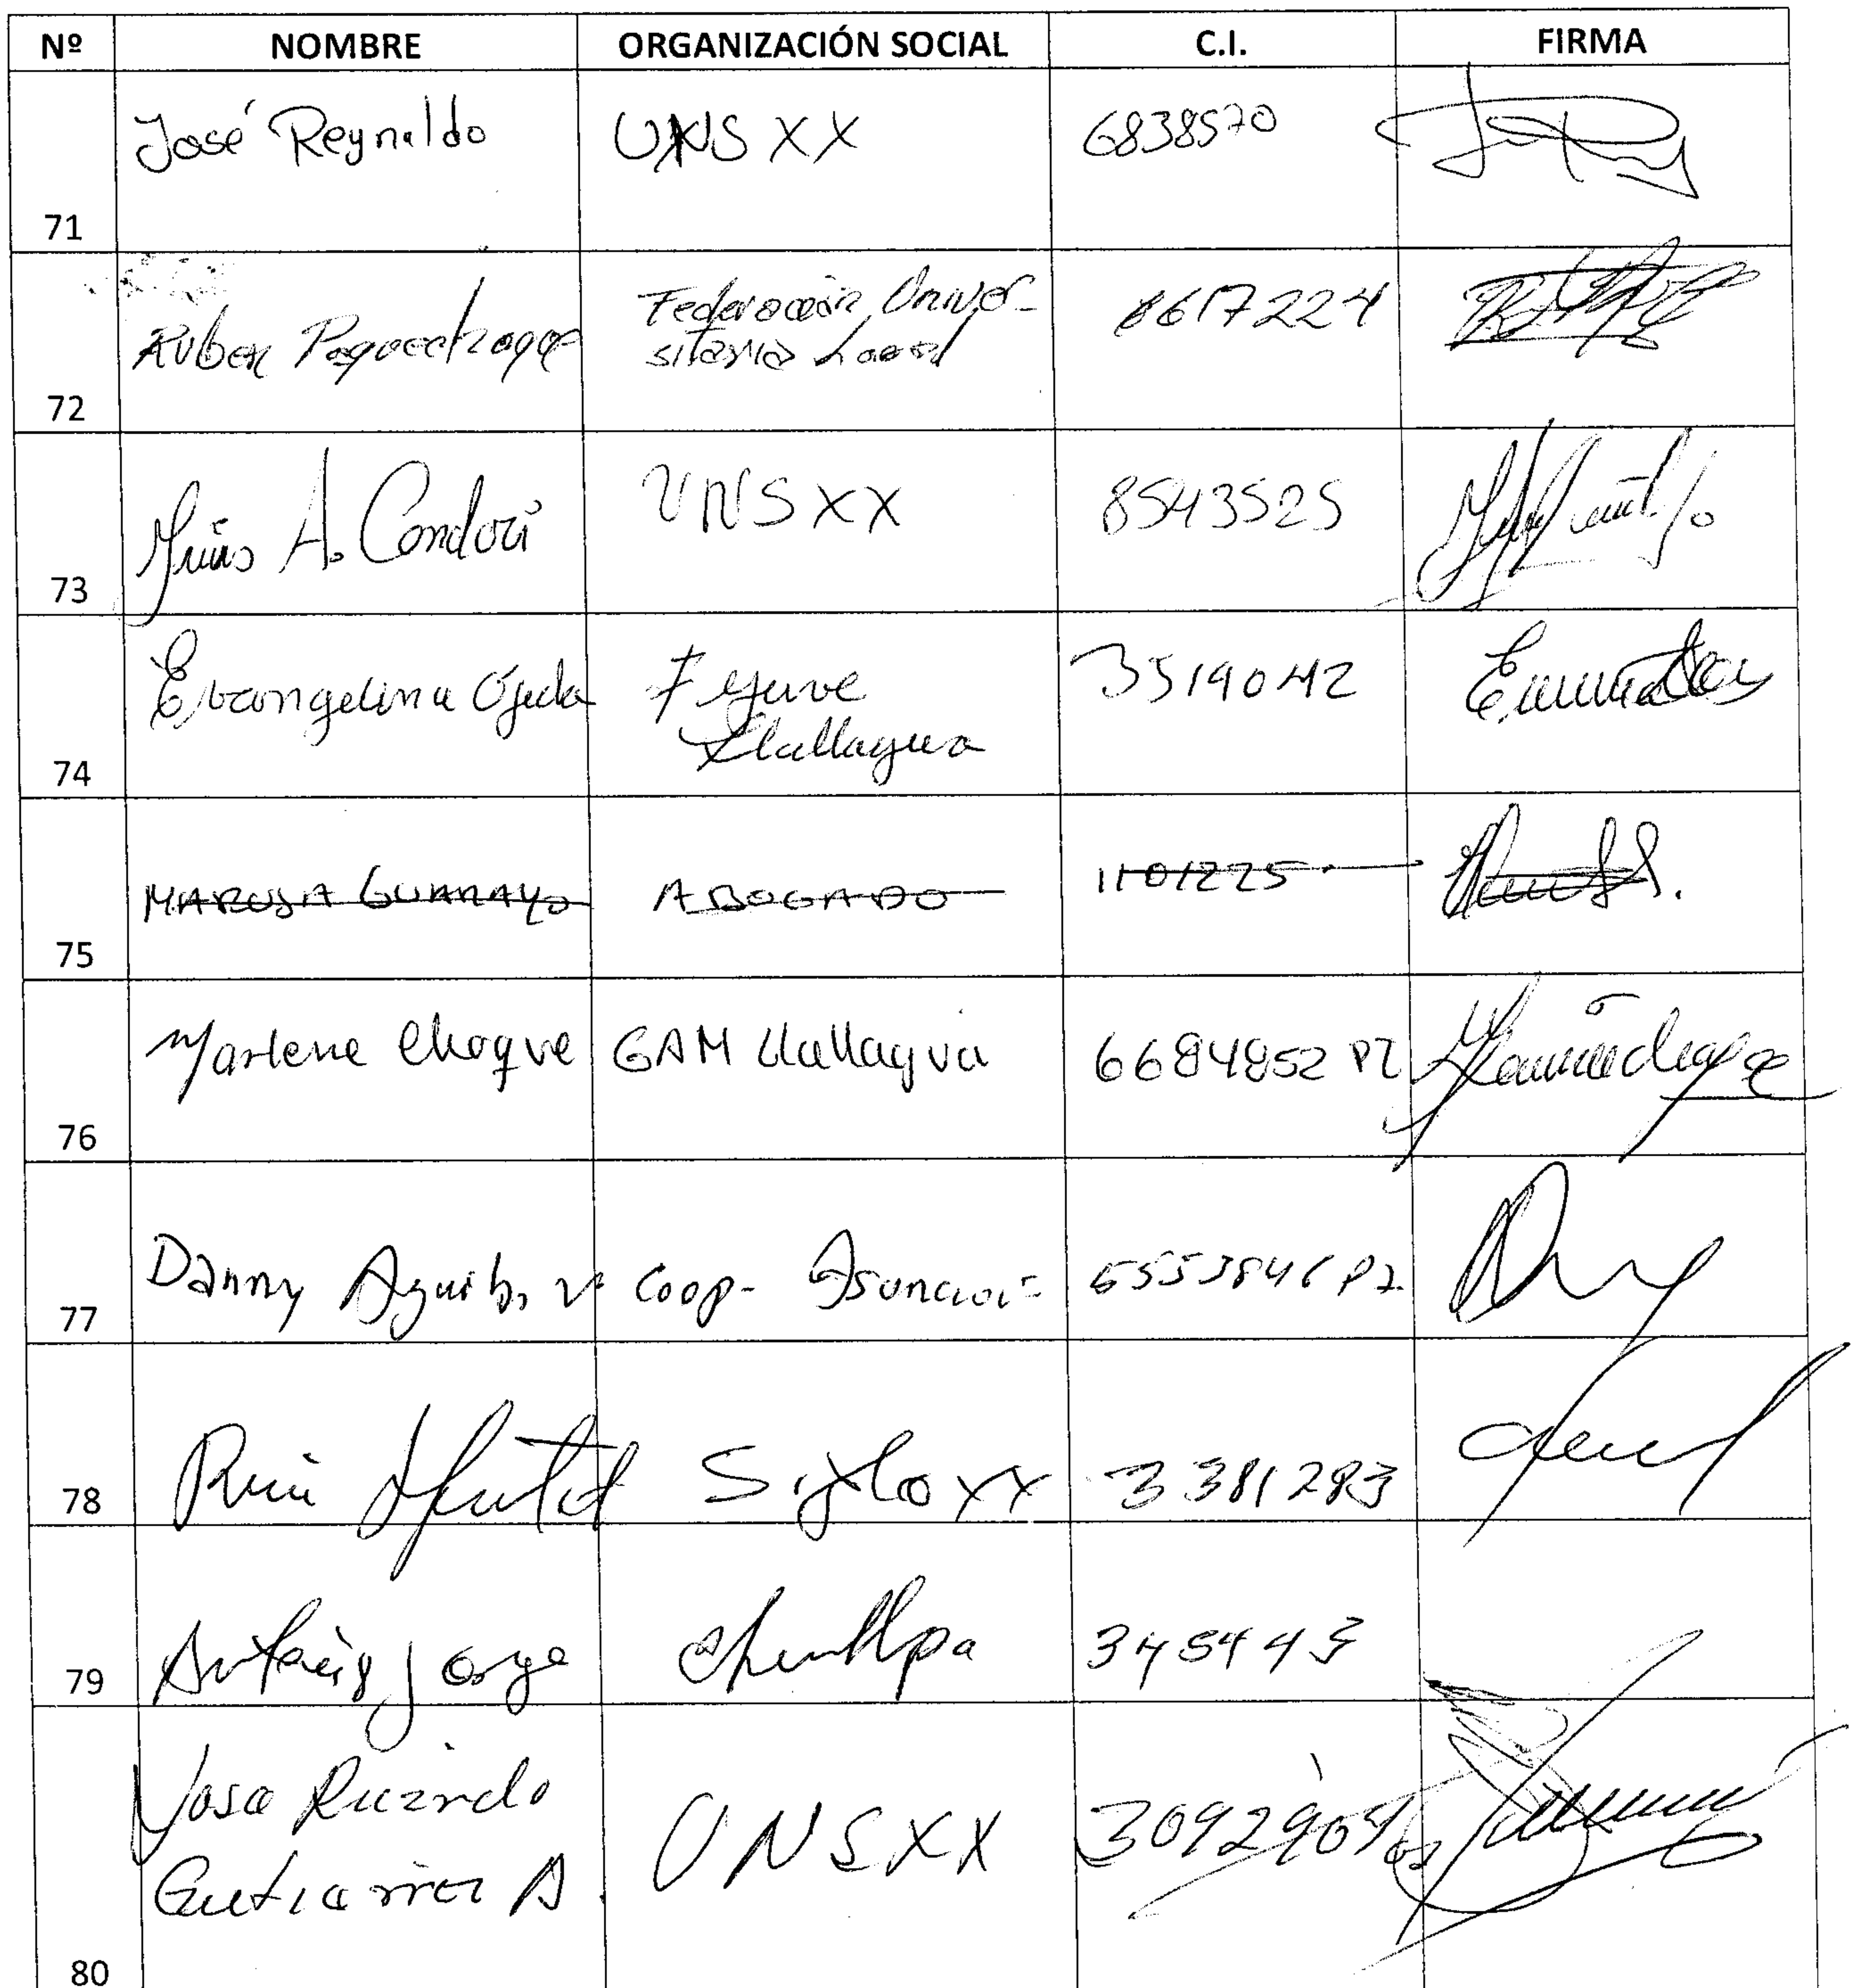 Nº NOMBRE ORGANIZACIÓN SOCIAL C.I. FIRMA
José Reynaldo UNS XX 6838570
71
Ruben Federación Univer-
sitaria Local 8617224
72
A. Condori UNSXX 8543525
73
Evangelina Ojeda Fejuve
Llallagua 3519042
74
MARUJA GUARAYO ABOGADO 1101225
75
Marlene Choque GAM Llallagua 6684852 PZ
76
Danny Aguilar V. Coop. Asunción
77
Siglo XX 3381283
78
Jorge Chullpa
79
Jose Ricardo
Gutierrez A. UNSXX 3092904
80